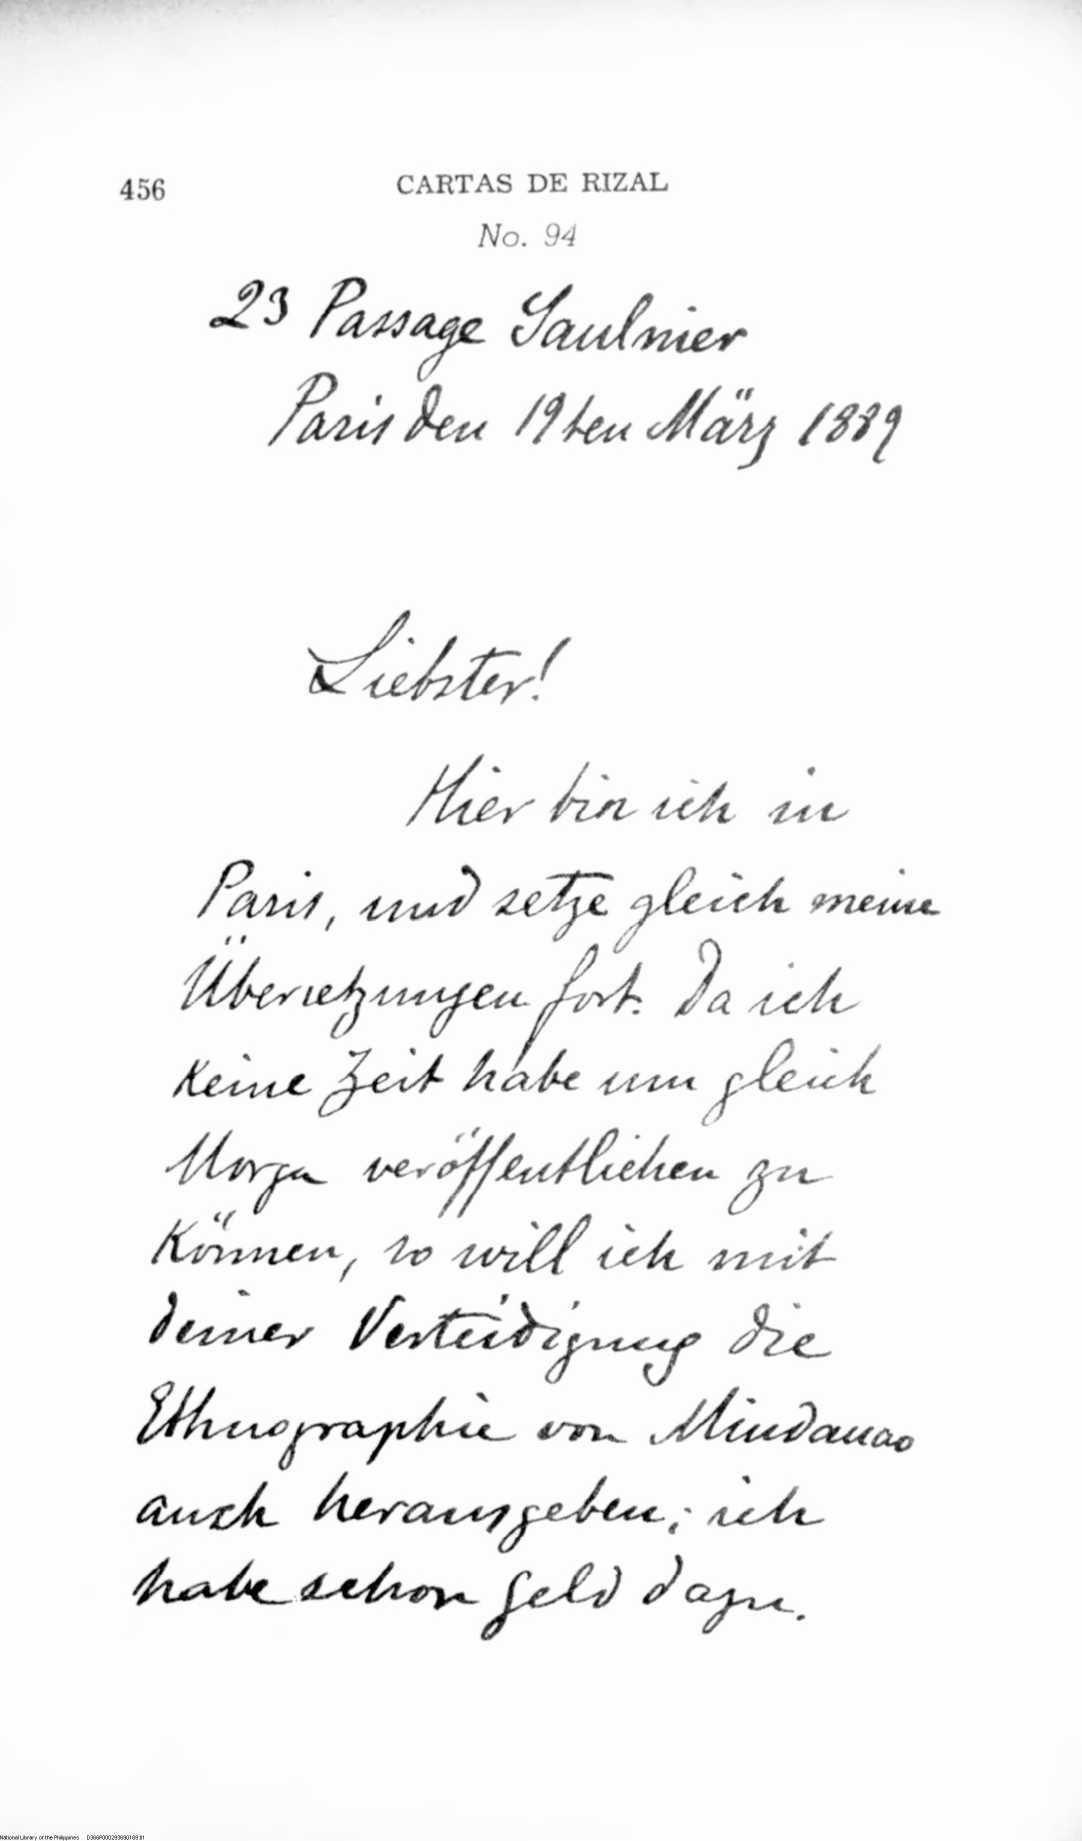 456
CARTAS DE RIZAL
No. 94
23 Passage Saulnier
Paris den 19ten März 1889
Liebster!
Hier bin ich in
Paris, und setze gleich meine
Übersetzungen fort. Da ich
keine Zeit habe um gleich
Morga veröffentlichen zu
können, so will ich mit
deiner Verteidigung die
Ethnographie von Mindanao
auch herausgeben; ich
habe schon geld dazu.
National Library of the Philippines